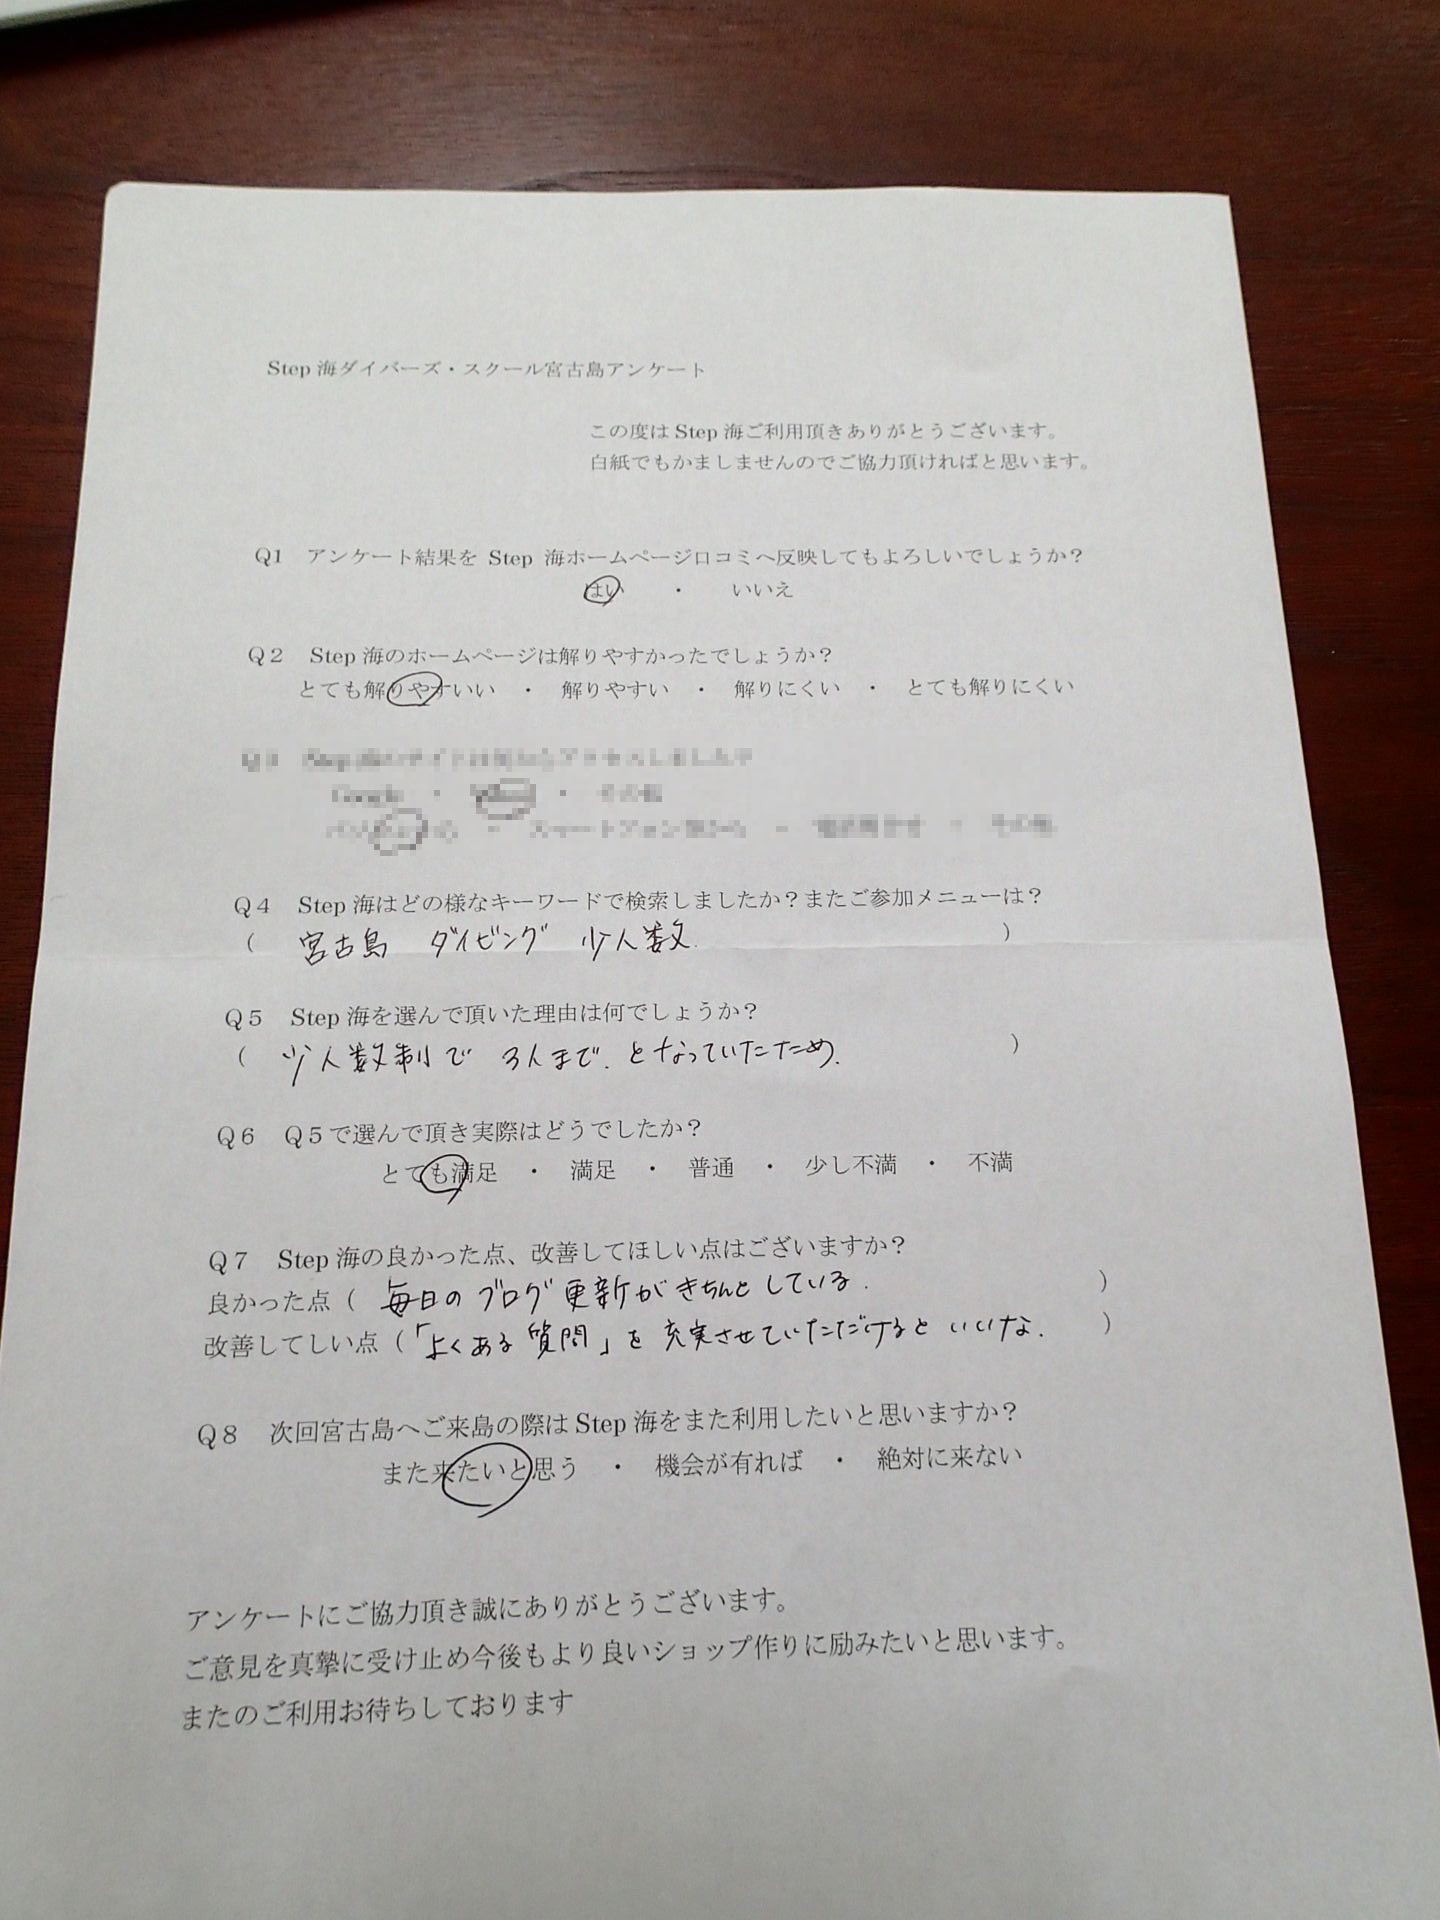 Step 海ダイバーズ・スクール宮古島アンケート
この度は Step 海ご利用頂きありがとうございます。
白紙でもかましませんのでご協力頂ければと思います。
Q1 アンケート結果を Step 海ホームページ口コミへ反映してもよろしいでしょうか？
はい ・ いいえ
Q２ Step 海のホームページは解りやすかったでしょうか？
とても解りやすいい ・ 解りやすい ・ 解りにくい ・ とても解りにくい
Q４ Step 海はどの様なキーワードで検索しましたか？またご参加メニューは？
（ 宮古島 ダイビング 少人数. ）
Q５ Step 海を選んで頂いた理由は何でしょうか？
（ 少人数制で 3人まで. となっていたため. ）
Q６ Q５で選んで頂き実際はどうでしたか？
とても満足 ・ 満足 ・ 普通 ・ 少し不満 ・ 不満
Q７ Step 海の良かった点、改善してほしい点はございますか？
良かった点（ 毎日のブログ更新がきちんとしている. ）
改善してしい点（「よくある質問」を充実させていただけるといいな. ）
Q８ 次回宮古島へご来島の際は Step 海をまた利用したいと思いますか？
また来たいと思う ・ 機会が有れば ・ 絶対に来ない
アンケートにご協力頂き誠にありがとうございます。
ご意見を真摯に受け止め今後もより良いショップ作りに励みたいと思います。
またのご利用お待ちしております